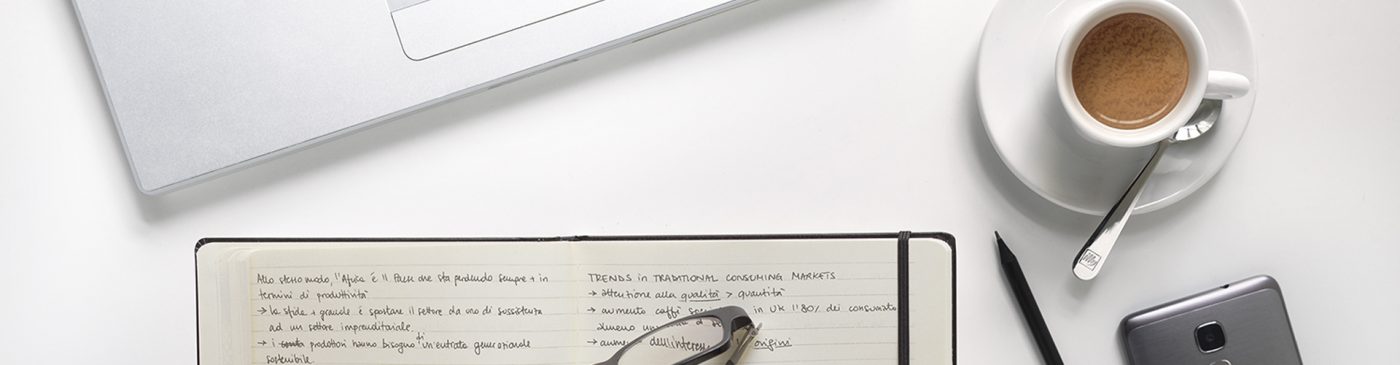 Allo stesso modo, l'Africa è il Paese che sta perdendo sempre + in
termini di produttività
→ la sfida + grande è spostare il settore da uno di sussistenza
ad un settore imprenditoriale
→ i produttori hanno bisogno di un'entrata generazionale
sostenibile.
TRENDS in TRADITIONAL CONSUMING MARKETS
→ attenzione alla qualità > quantità
→ aumento caffè in UK l'80% dei consumatori
almeno una
→ aumento dell'interesse origini